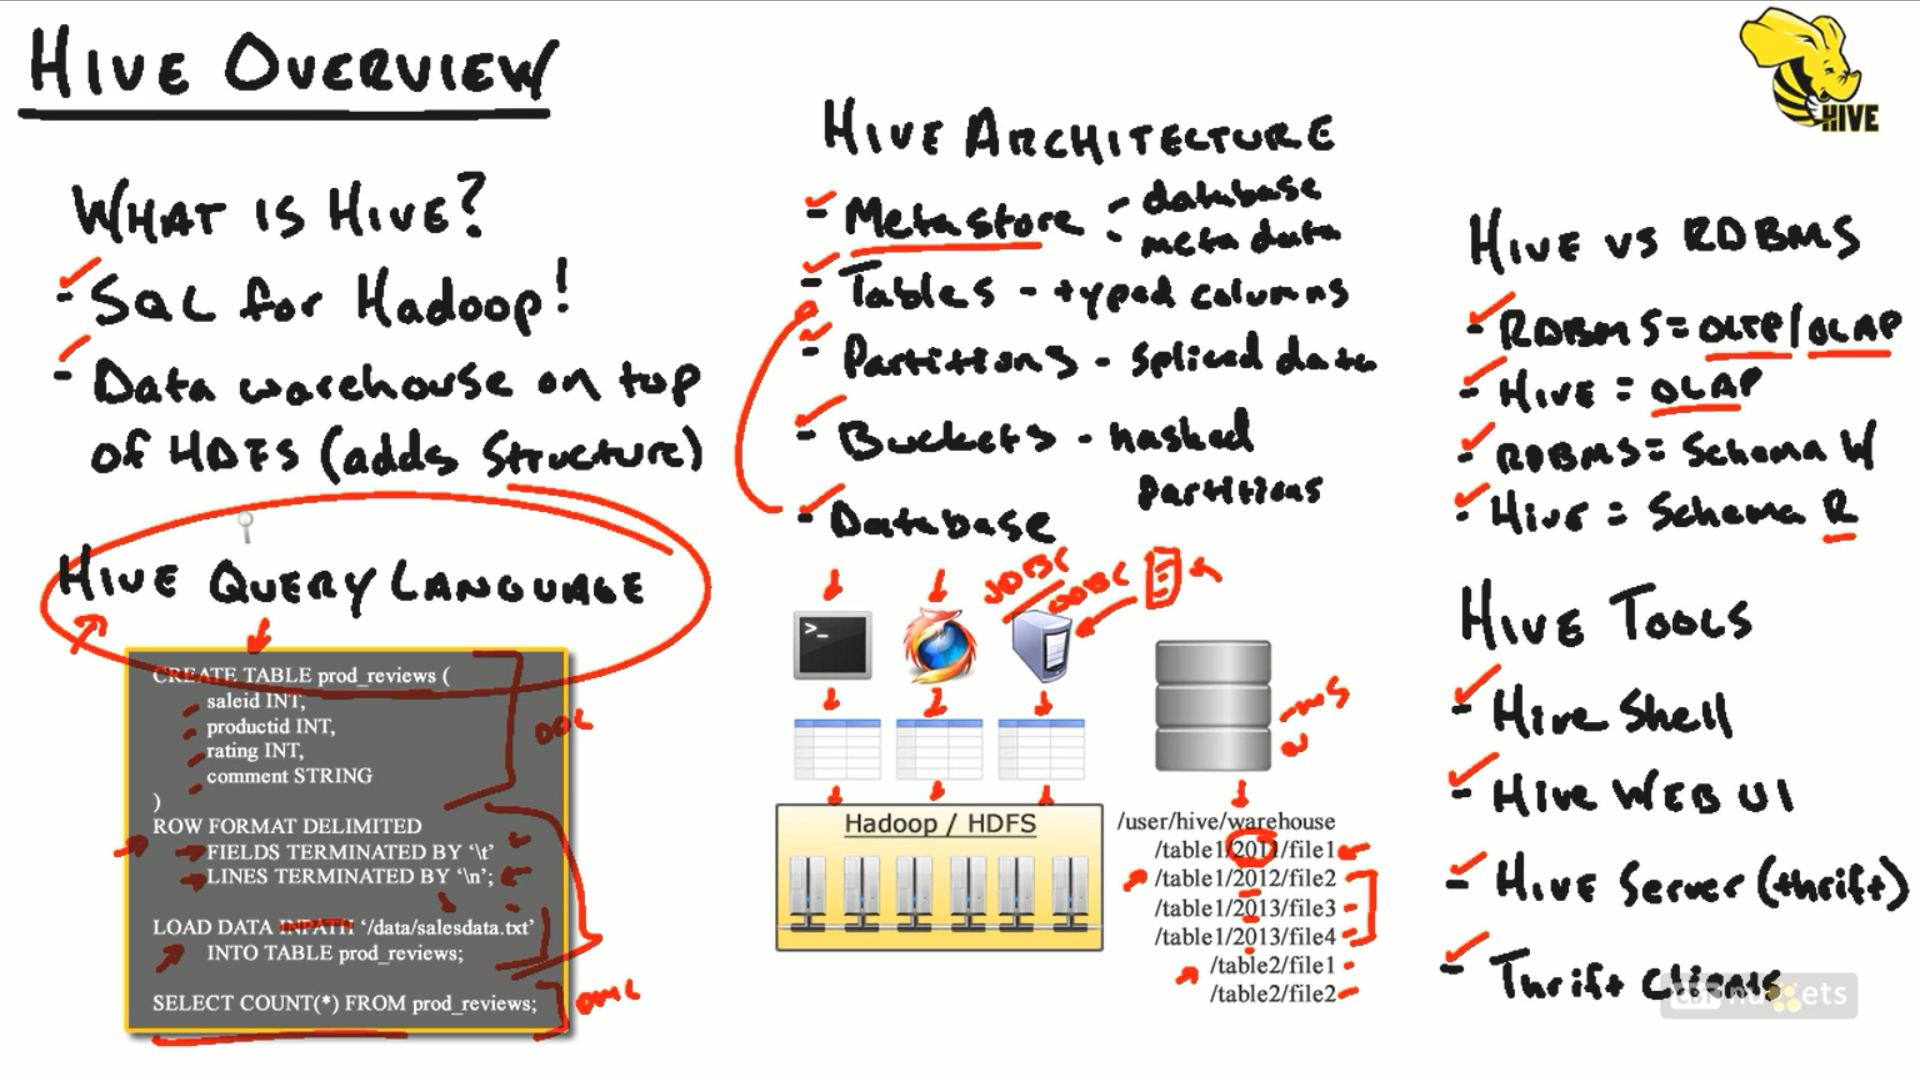 HIVE OVERVIEW
WHAT IS HIVE?
- SQL for Hadoop!
- Data warehouse on top
of HDFS (adds Structure)
HIVE QUERY LANGUAGE
CREATE TABLE prod_reviews (
saleid INT,
productid INT,
rating INT,
comment STRING
)
ROW FORMAT DELIMITED
FIELDS TERMINATED BY ‘\t’
LINES TERMINATED BY ‘\n’;
LOAD DATA INPATH ‘/data/salesdata.txt’
INTO TABLE prod_reviews;
SELECT COUNT(*) FROM prod_reviews;
DDL
DML
HIVE ARCHITECTURE
- Metastore - database
- meta data
- Tables - typed columns
- Partitions - spliced data
- Buckets - hashed
partitions
- Database
JDBC
ODBC
>_
Hadoop / HDFS
/user/hive/warehouse
/table1/2011/file1
/table1/2012/file2
/table1/2013/file3
/table1/2013/file4
/table2/file1
/table2/file2
HIVE
HIVE VS RDBMS
- RDBMS = OLTP/OLAP
- HIVE = OLAP
- RDBMS = Schema W
- Hive = Schema R
HIVE TOOLS
- Hive Shell
- Hive WEB UI
- HIVE Server (thrift)
- Thrift Clients
cbt nuggets